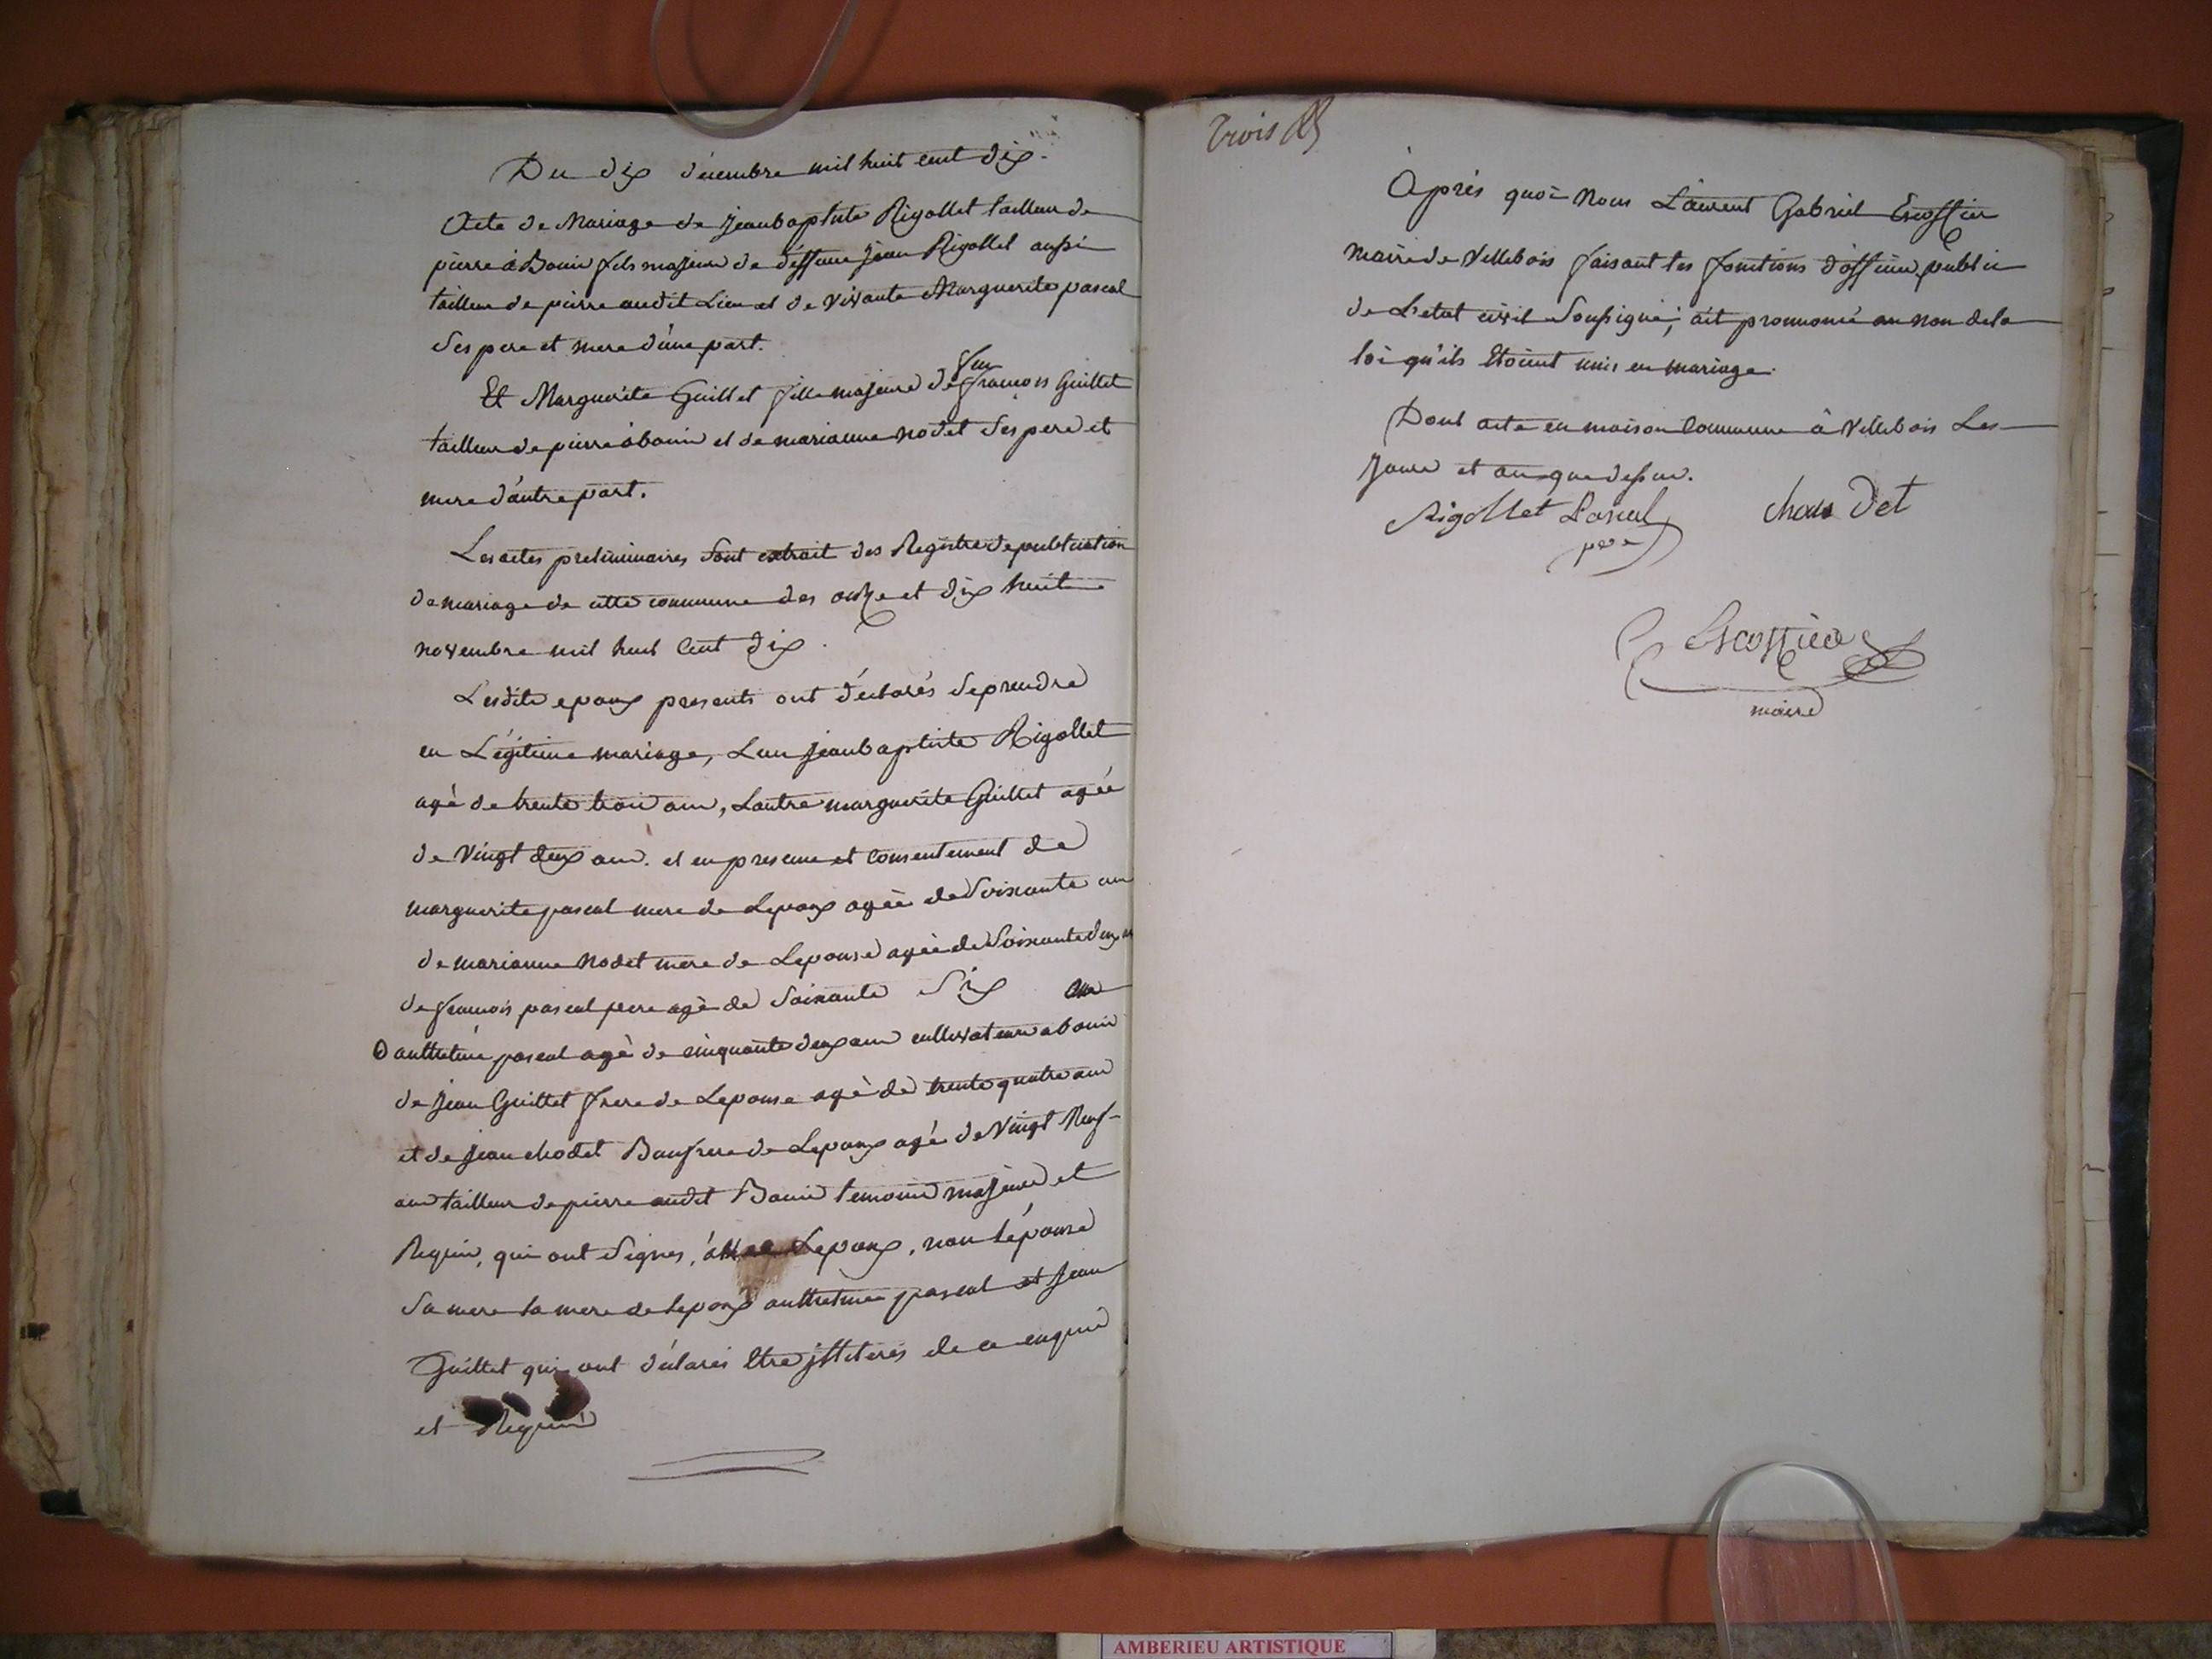 Du dix décembre mil huit cent dix.
Acte de Mariage de Jean baptiste Rigollet tailleur de
pierre à Bouis fils majeur de déffunt Jean Rigollet aussi
tailleur de pierre audit Lieu et de vivante Marguerite pascal
Ses pere et mere d'une part.
Et Marguerite Guillet fille majeure de feu francois Guillet
tailleur de pierre à bouis et de marianne nodet Ses pere et
mere d'autre part.
Les actes preliminaires Sont extrait des Registre de publication
de mariage de cette commune des onze et dix huit
novembre mil huit Cent dix.
Lesdits epoux presents ont déclarés Se prendre
en Légitime mariage, Lun Jean baptiste Rigollet
agé de trente trois ans, Lautre marguerite Guillet agée
de Vingt deux ans. et en presence et Consentement de
marguerite pascal mere de Lepoux agée de Soixante ans
de marianne nodet mere de Lepouse agée de Soixante deux
de francois pascal pere agé de Soixante Six ans
D'anthelme pascal agé de cinquante deux ans cultivateur a bouis
de Jean Guillet frere de Lepouse agé de trente quatre ans
et de Jean chodet Beaufrere de Lepoux agé de Vingt Neuf
ans tailleur de pierre audit Bouis temoins majeurs et
Requis, qui ont Signés, Lepoux, non Lépouse
Sa mere la mere de Lepoux anthelme pascal et Jean
Guillet qui ont déclarés Etre illiterés de ce enquis
et Requis
Trois
Après quoi Nous Laurent Gabriel Escoffier
Maire de Villebois faisant les fonctions d'officier public
de L'etat civil Soussigné, ait prononcé au nom de la
loi qu'ils Etoient unis en mariage.
Dont acte en maison Commune à Villebois Les
Jours et an que dessus.
Rigollet Pascal
pere
chodet
Escoffier
maire
AMBERIEU ARTISTIQUE